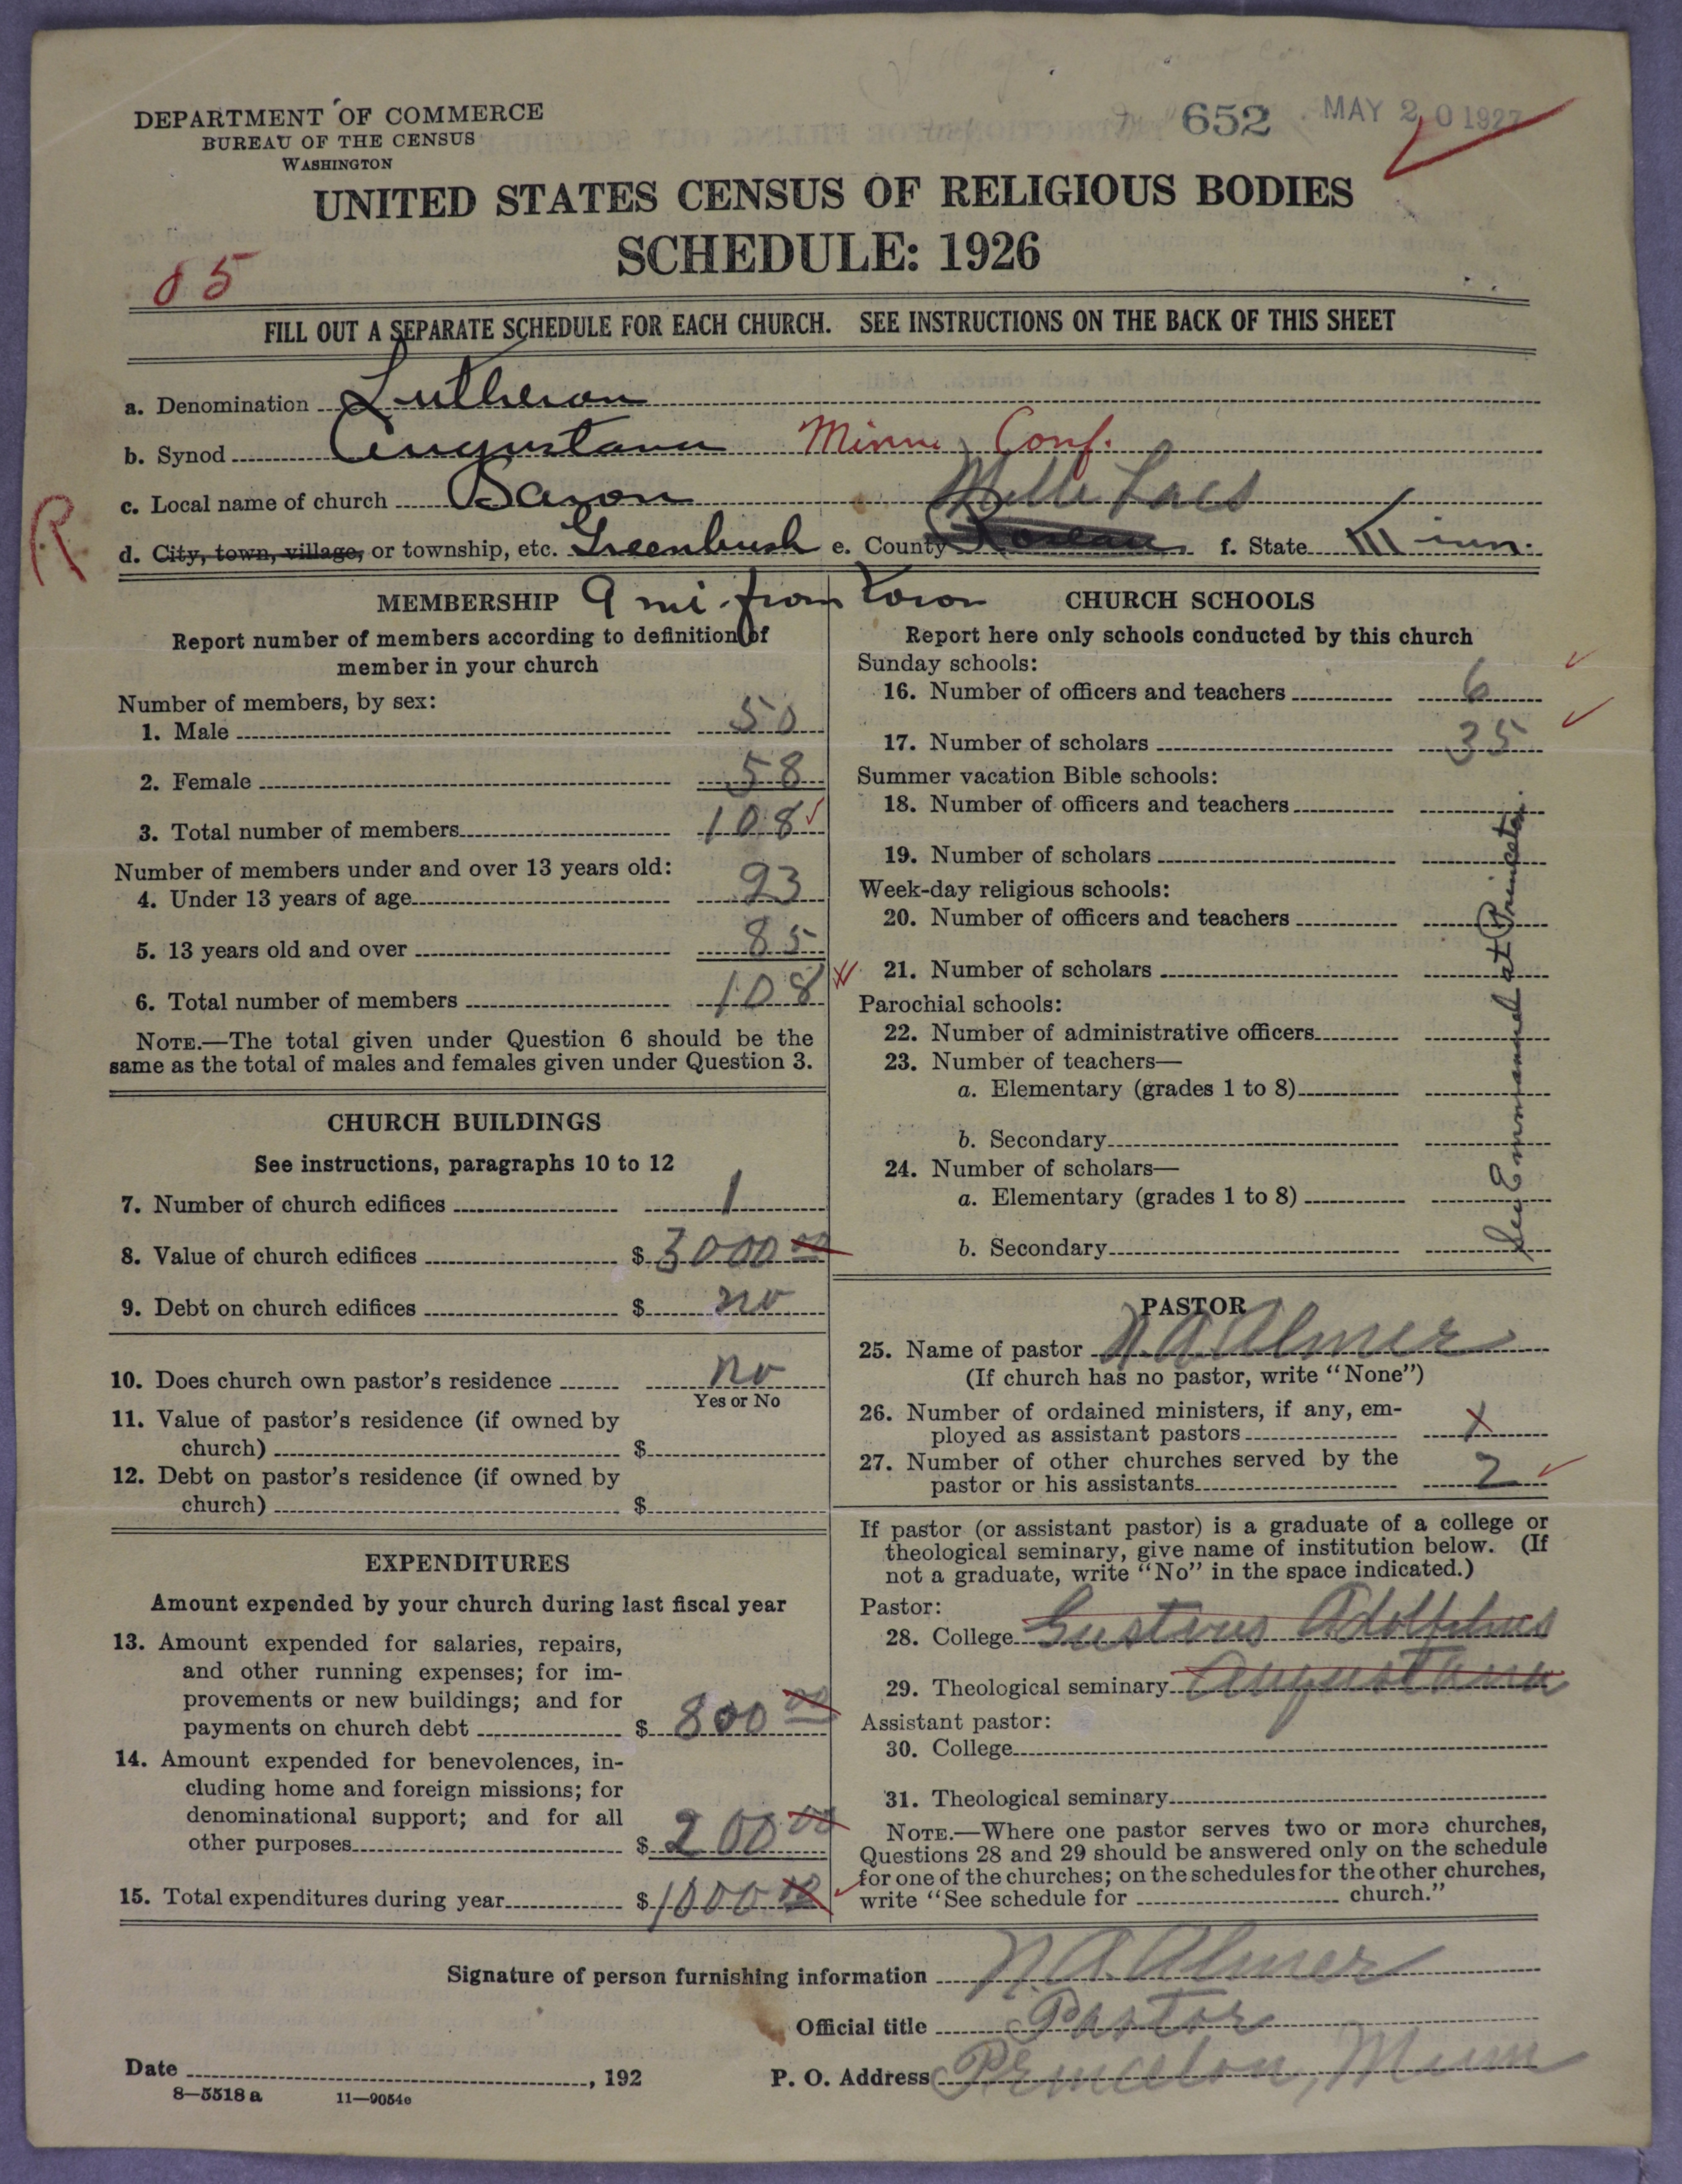 652 MAY 20 1927
DEPARTMENT OF COMMERCE
BUREAU OF THE CENSUS
WASHINGTON
UNITED STATES CENSUS OF RELIGIOUS BODIES
SCHEDULE: 1926
85
FILL OUT A SEPARATE SCHEDULE FOR EACH CHURCH. SEE INSTRUCTIONS ON THE BACK OF THIS SHEET
a. Denomination Lutheran
b. Synod Augustana Minn. Conf.
c. Local name of church
Mille Lacs
R
d. City, town, village, or township, etc. Greenbush e. County Roseau f. State Minn.
9 mi. from town
MEMBERSHIP
Report number of members according to definition of
member in your church
Number of members, by sex:
1. Male 50
2. Female 58
3. Total number of members 108
Number of members under and over 13 years old:
4. Under 13 years of age 23
5. 13 years old and over 85
6. Total number of members 108
NOTE.—The total given under Question 6 should be the
same as the total of males and females given under Question 3.
CHURCH BUILDINGS
See instructions, paragraphs 10 to 12
7. Number of church edifices 1
8. Value of church edifices $ 3000 00
9. Debt on church edifices $ no
10. Does church own pastor's residence no
Yes or No
11. Value of pastor's residence (if owned by
church) $
12. Debt on pastor's residence (if owned by
church) $
EXPENDITURES
Amount expended by your church during last fiscal year
13. Amount expended for salaries, repairs,
and other running expenses; for im-
provements or new buildings; and for
payments on church debt $ 800 00
14. Amount expended for benevolences, in-
cluding home and foreign missions; for
denominational support; and for all
other purposes $ 200 00
15. Total expenditures during year $ 1000 00
CHURCH SCHOOLS
Report here only schools conducted by this church
Sunday schools:
16. Number of officers and teachers 6
17. Number of scholars 35
Summer vacation Bible schools:
18. Number of officers and teachers
19. Number of scholars
Week-day religious schools:
20. Number of officers and teachers
21. Number of scholars
Parochial schools:
22. Number of administrative officers
23. Number of teachers—
a. Elementary (grades 1 to 8)
b. Secondary
24. Number of scholars—
a. Elementary (grades 1 to 8)
b. Secondary
See Emmanuel at Princeton.
PASTOR
25. Name of pastor N. A. Almer
(If church has no pastor, write "None")
26. Number of ordained ministers, if any, em-
ployed as assistant pastors
27. Number of other churches served by the
pastor or his assistants 2
If pastor (or assistant pastor) is a graduate of a college or
theological seminary, give name of institution below. (If
not a graduate, write "No" in the space indicated.)
Pastor:
28. College Gustavus Adolphus
29. Theological seminary Augustana
Assistant pastor:
30. College
31. Theological seminary
NOTE.—Where one pastor serves two or more churches,
Questions 28 and 29 should be answered only on the schedule
for one of the churches; on the schedules for the other churches,
write "See schedule for church."
Signature of person furnishing information N. A. Almer
Official title Pastor
Date , 192 P. O. Address Princeton, Minn
8—5518 a 11—9054e